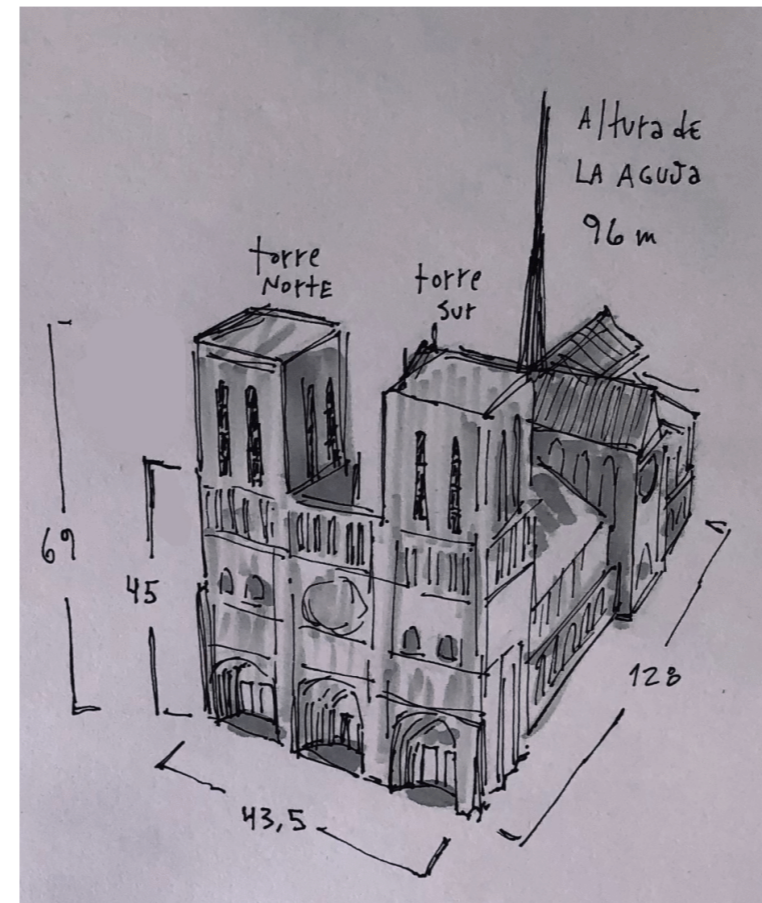 Altura de
LA AGUJa
96 m
torre
NortE
torre
sur
69
45
128
43,5